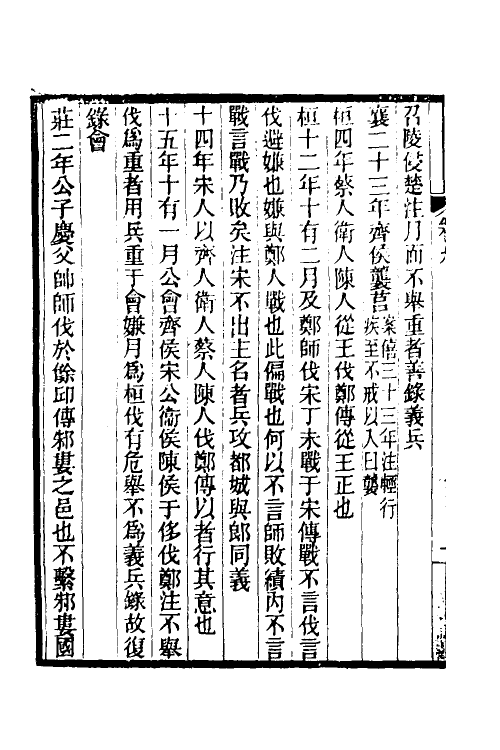 召陵侵楚注月而不舉重者善錄義兵
襄二十三年齊侯襲莒案僖三十三年注輕行疾至不戒以入曰襲
桓四年蔡人衛人陳人從王伐鄭傳從王正也
桓十二年十有二月及鄭師伐宋丁未戰于宋傳戰不言伐言
伐避嫌也嫌與鄭人戰也此偏戰也何以不言師敗績內不言
戰言戰乃敗矣注宋不出主名者兵攻都城與郎同義
十四年宋人以齊人衛人蔡人陳人伐鄭傳以者行其意也
十五年十有一月公會齊侯宋公衛侯陳侯于侈伐鄭注不舉
伐爲重者用兵重于會嫌月爲桓伐有危舉不爲義兵錄故復
錄會
莊二年公子慶父帥師伐於餘邱傳邾婁之邑也不繫邾婁國